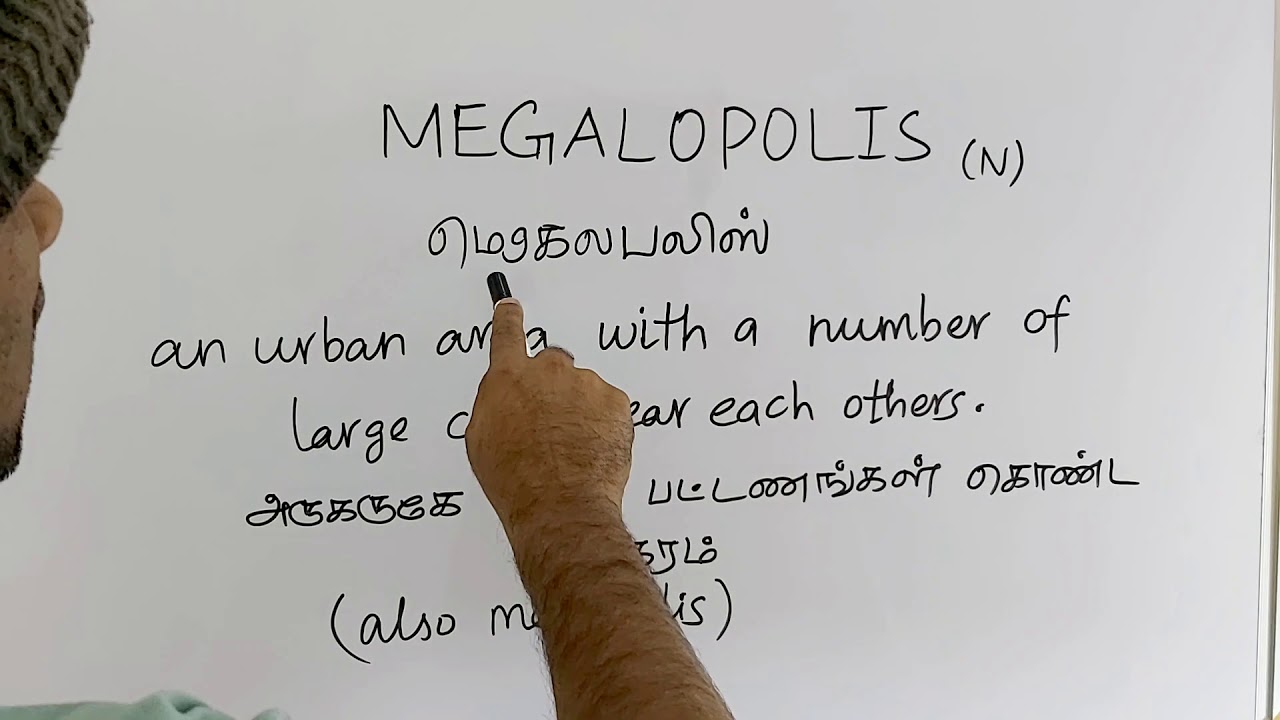 MEGALOPOLIS (N)
மெகலபலிஸ்
an urban area with a number of
large near each others.
அருகருகே பட்டணங்கள் கொண்ட
(also